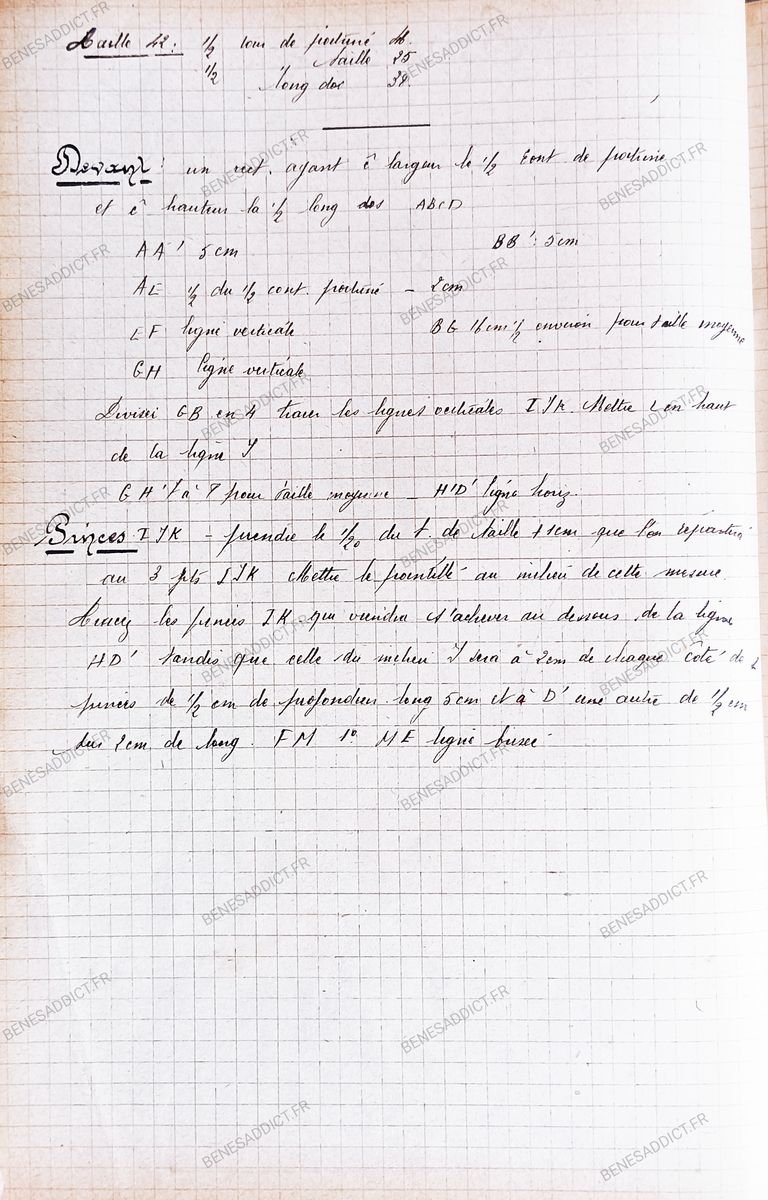 Taille 42 : 1/2 tour de poitrine
1/2 taille 35
long dos 38.
Devant : un rect. ayant c̄ largeur le 1/2 cont de poitrine
et c̄ hauteur la 1/2 long dos ABCD
AA' 5cm BB' : 5cm
AE 1/2 du 1/2 cont. poitrine – 2cm
EF ligne verticale BG 16cm 1/2 environ pour taille moyenne
GH ligne verticale
Diviser GB en 4 tracer les lignes verticales IJK. Mettre en haut
de la ligne J
GH' 7 à 8 pour taille moyenne – H'D' ligne horiz.
Pinces IJK – prendre le 1/20 du t. de taille +1cm que l'on répartira
au 3 pts IJK Mettre le pointillé au milieu de cette mesure.
Tracez les pinces IK qui viendra s'achever au dessous de la ligne
HD' tandis que celle du milieu J sera à 2cm de chaque côté de 2
pinces de 1/2 cm de profondeur. long 5cm et à D' une autre de 1/2 cm
sur 2cm de long. FM 1c ME ligne
BENESADDICT.FR